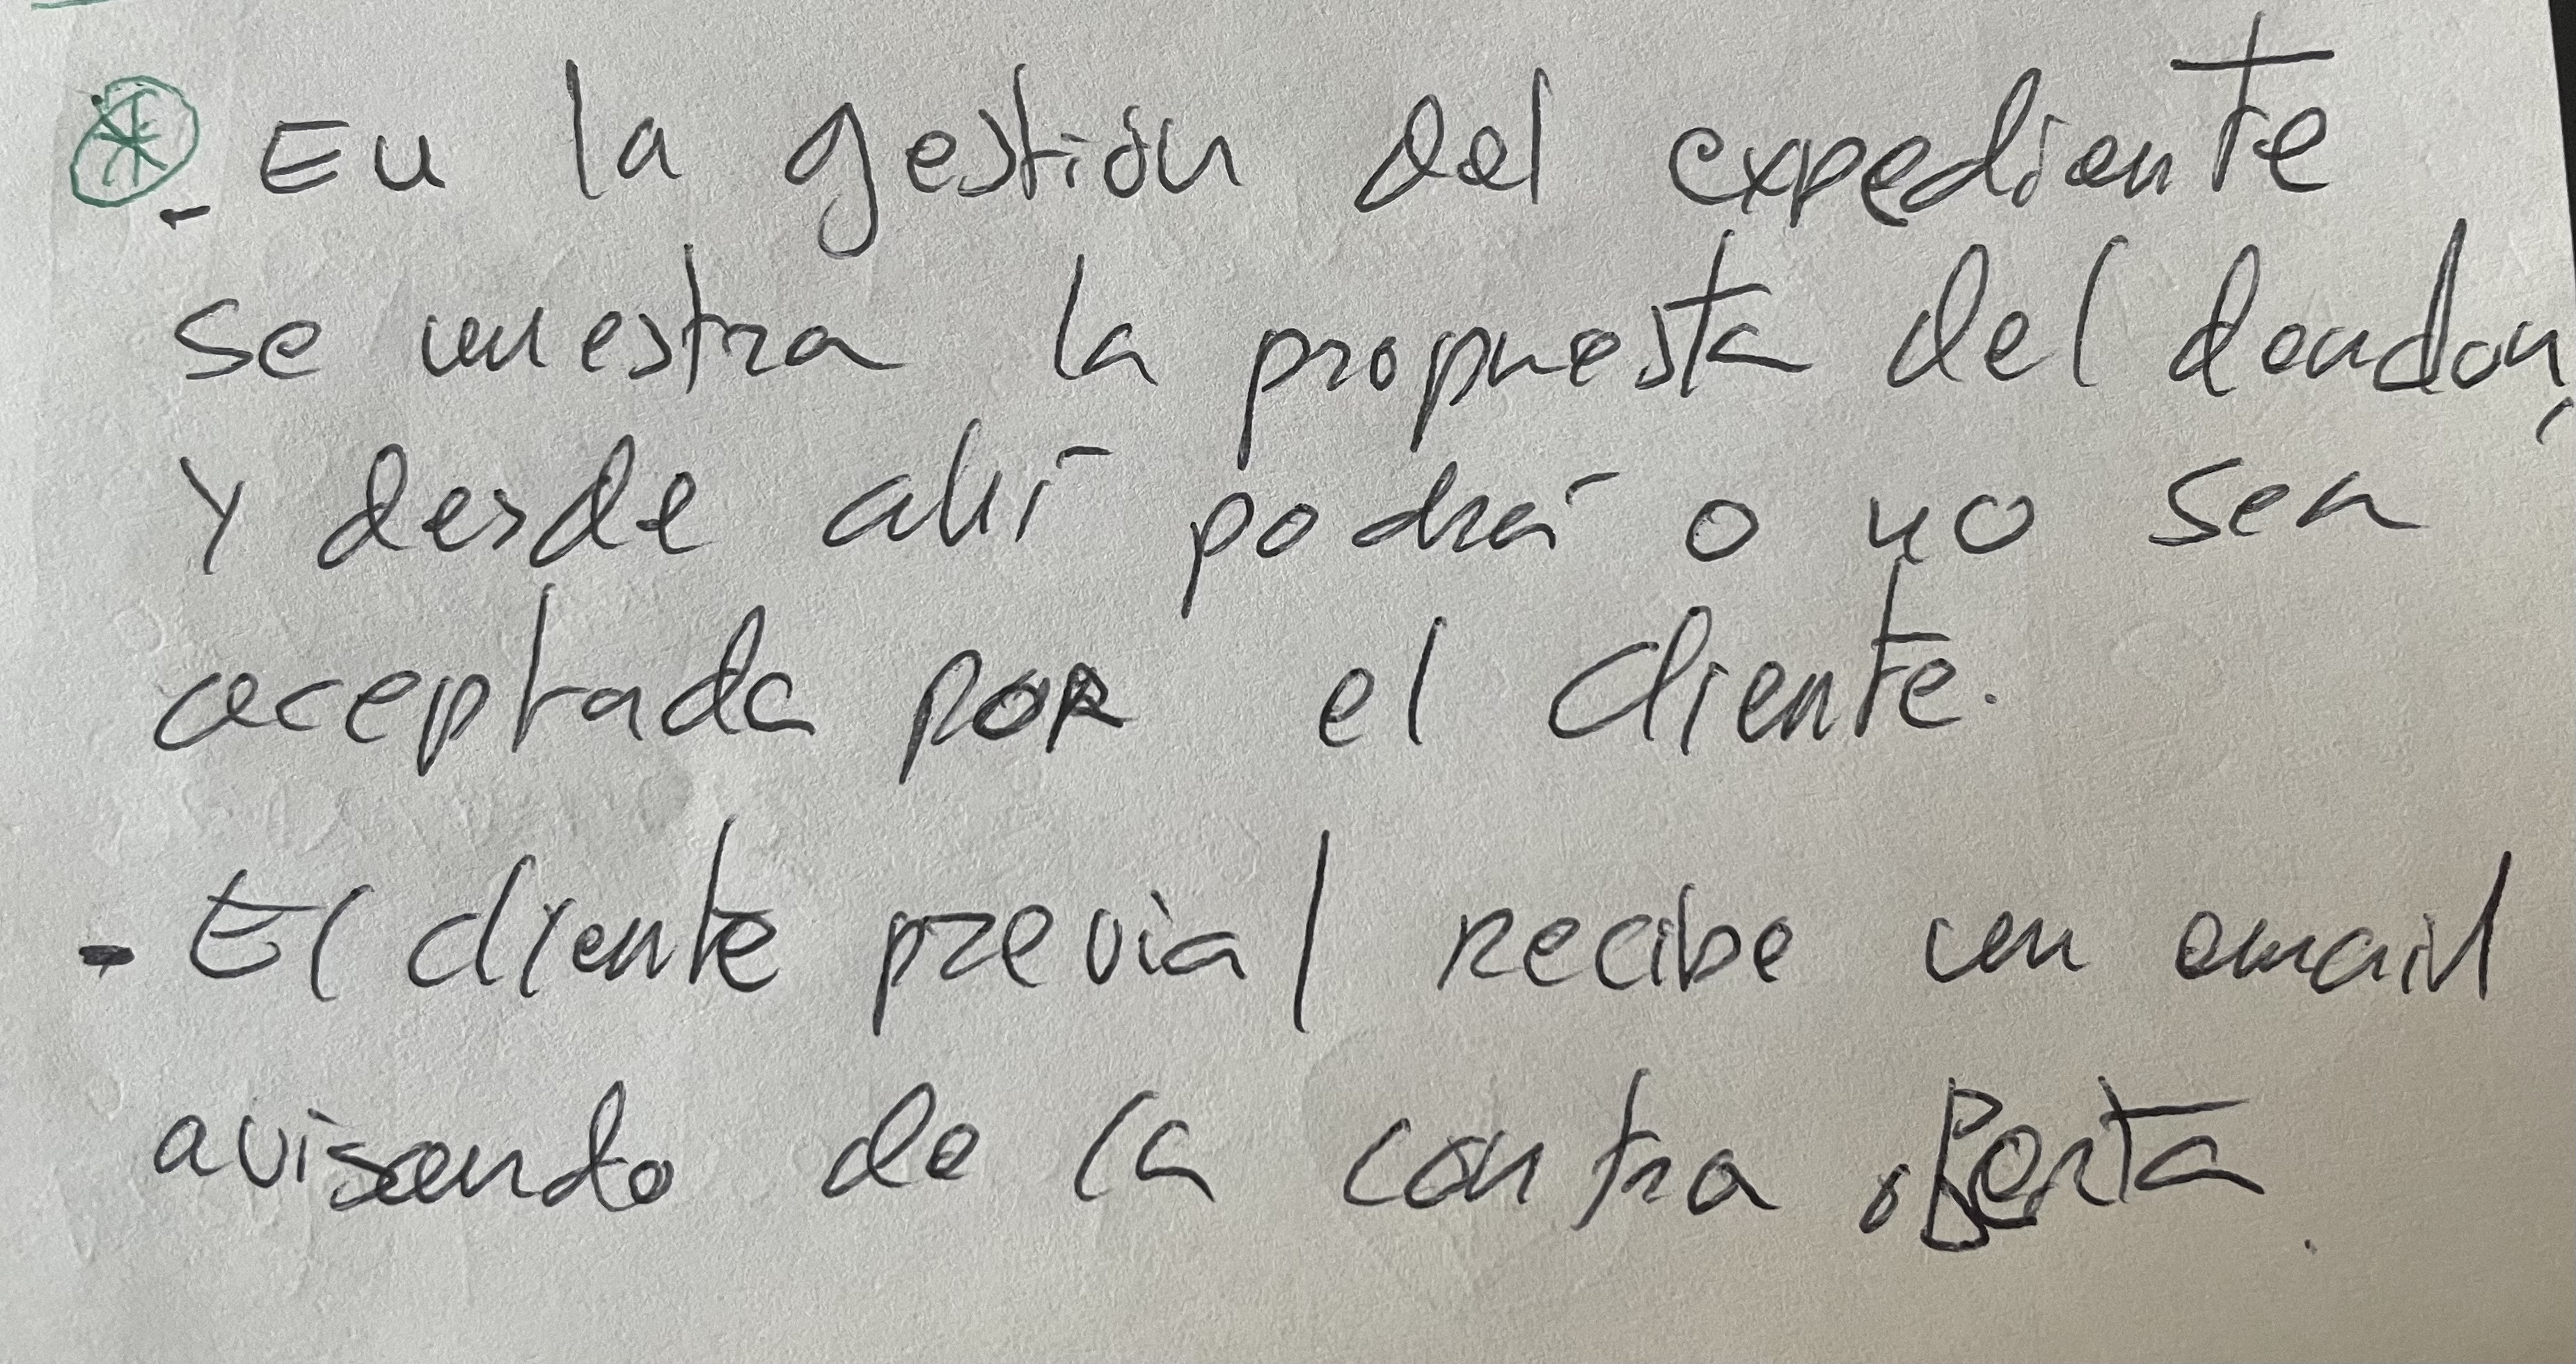 - En la gestión del expediente
se muestra la propuesta del deudor,
y desde ahí podrá o no ser
aceptada por el cliente.
- El cliente previal recibe un email
avisando de la contra oferta.